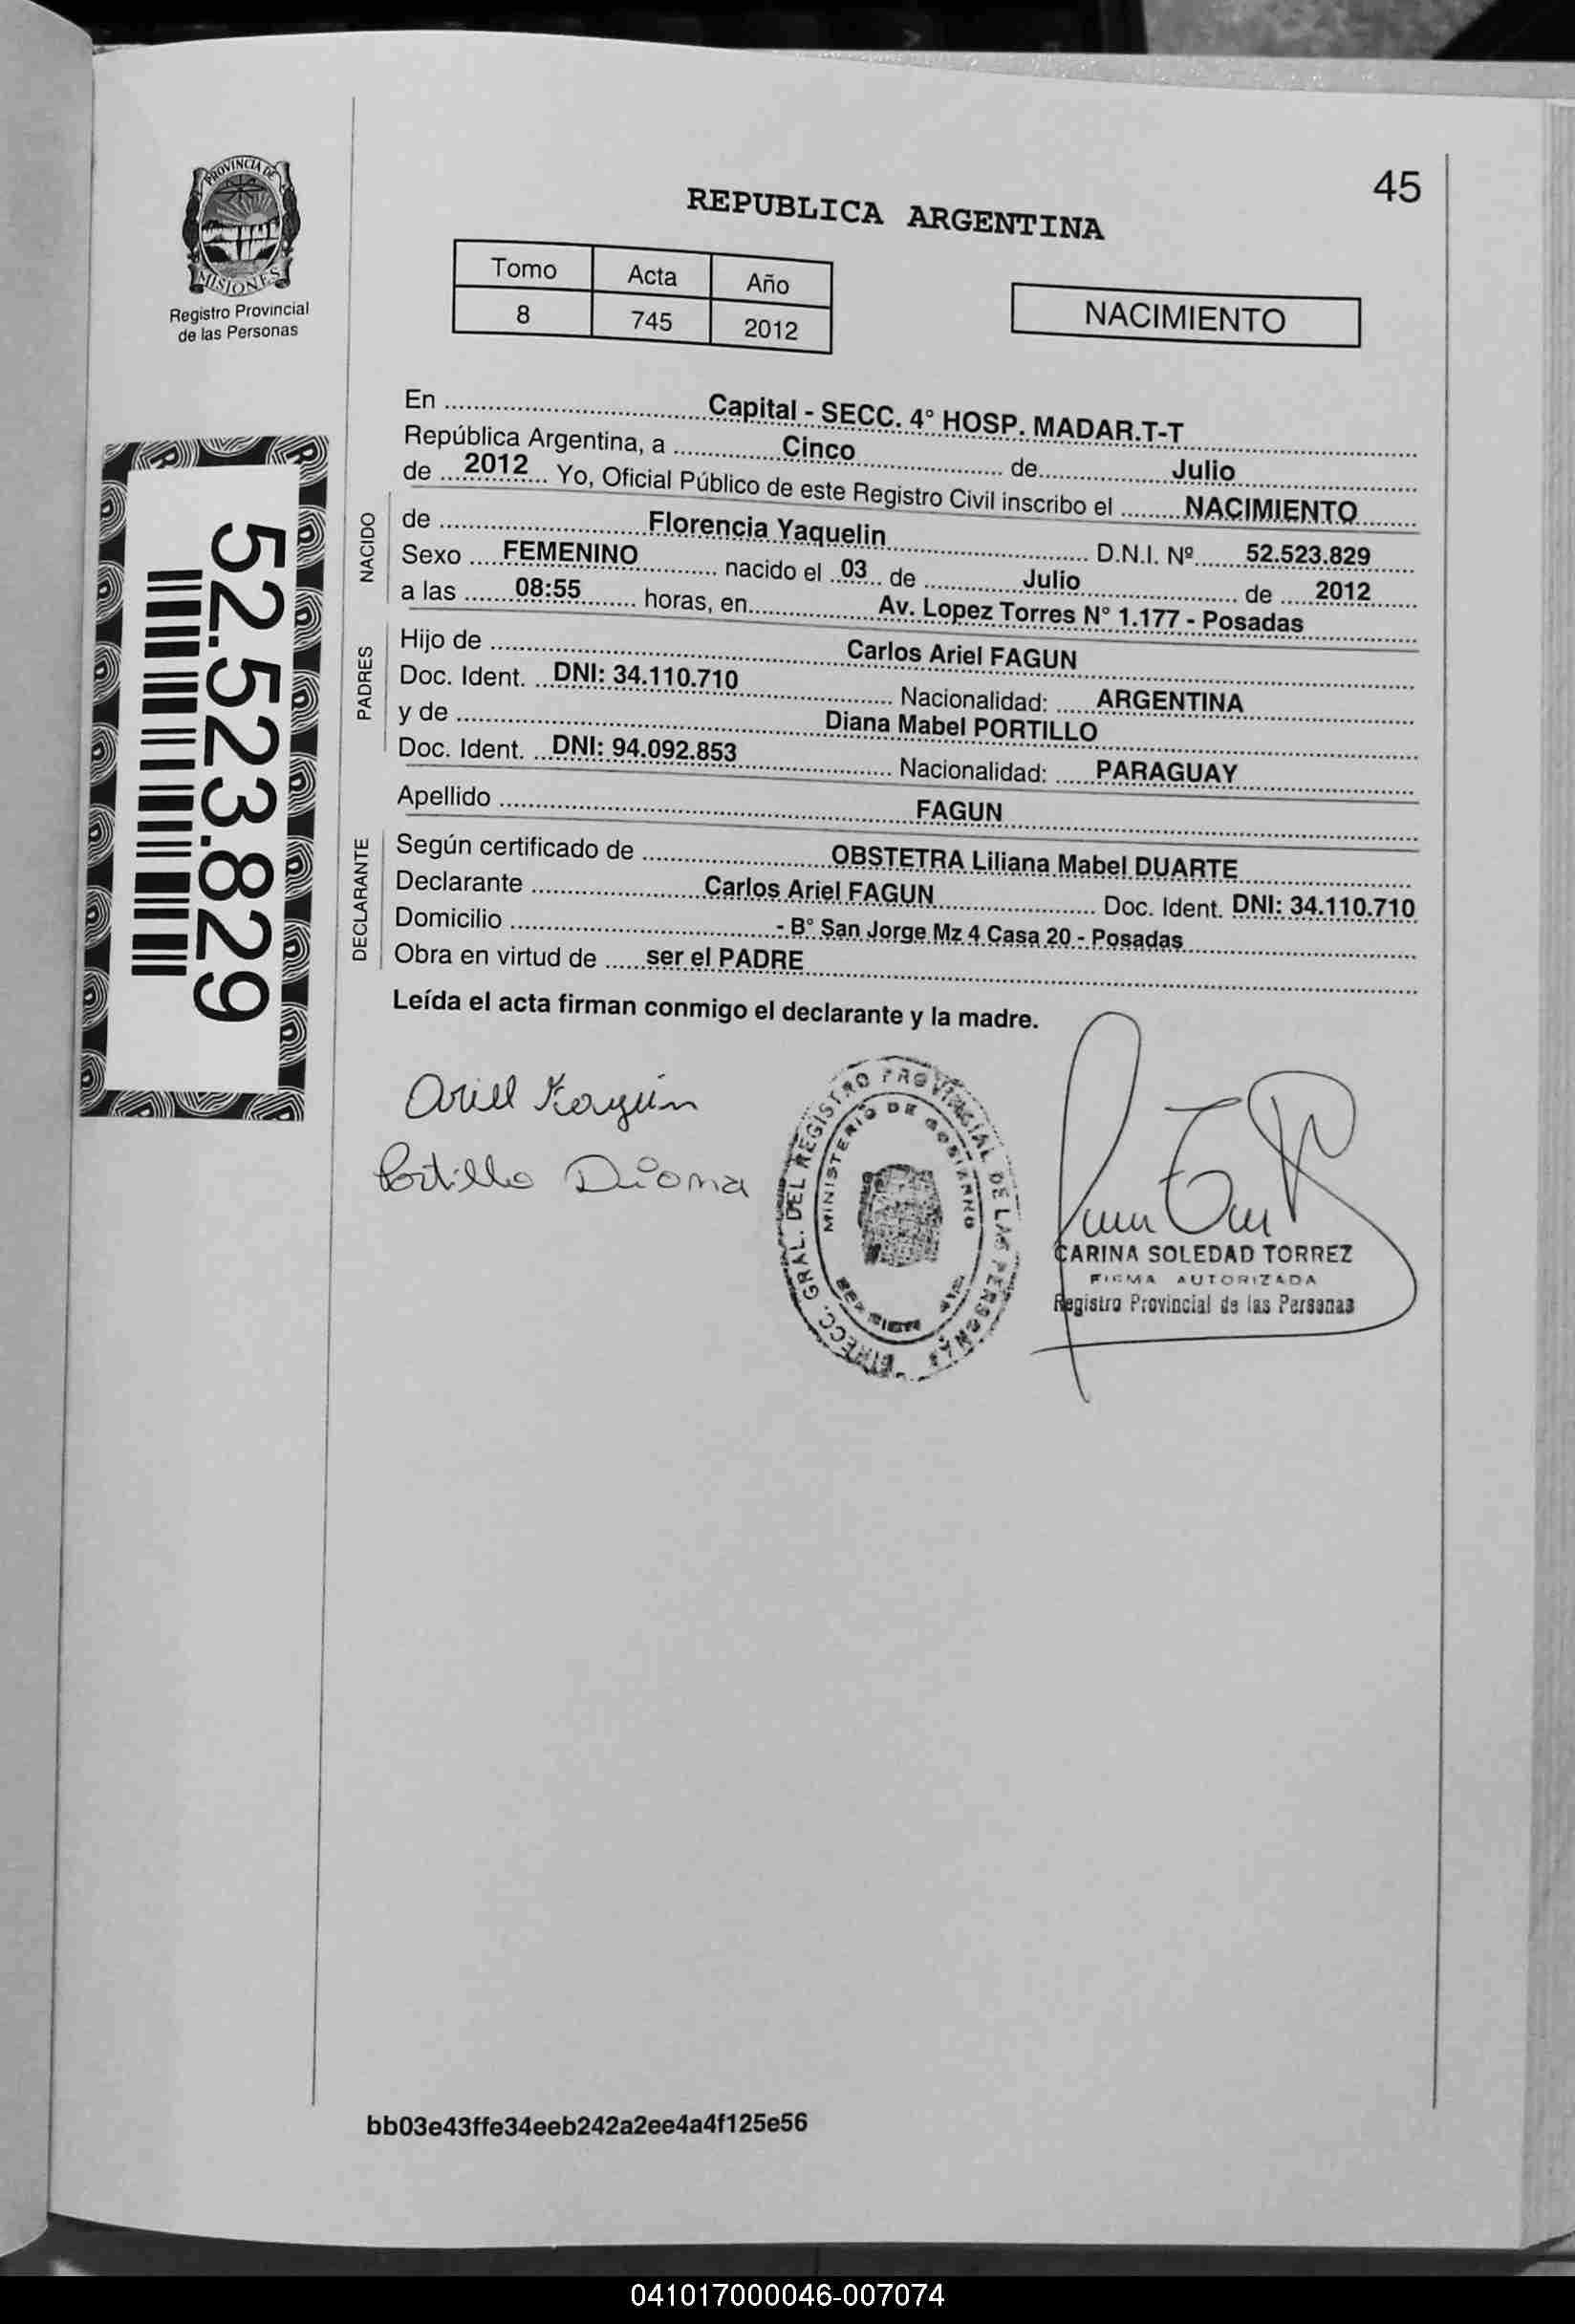 PROVINCIA DE
MISIONES
Registro Provincial
de las Personas
45
REPUBLICA ARGENTINA
Tomo Acta Año
8 745 2012
NACIMIENTO
En Capital - SECC. 4° HOSP. MADAR.T-T
República Argentina, a Cinco de Julio
de 2012 Yo, Oficial Público de este Registro Civil inscribo el NACIMIENTO
NACIDO
de Florencia Yaquelin D.N.I. Nº 52.523.829
Sexo FEMENINO nacido el 03 de Julio de 2012
a las 08:55 horas, en Av. Lopez Torres N° 1.177 - Posadas
PADRES
Hijo de Carlos Ariel FAGUN
Doc. Ident. DNI: 34.110.710 Nacionalidad: ARGENTINA
y de Diana Mabel PORTILLO
Doc. Ident. DNI: 94.092.853 Nacionalidad: PARAGUAY
Apellido FAGUN
DECLARANTE
Según certificado de OBSTETRA Liliana Mabel DUARTE
Declarante Carlos Ariel FAGUN Doc. Ident. DNI: 34.110.710
Domicilio - B° San Jorge Mz 4 Casa 20 - Posadas
Obra en virtud de ser el PADRE
Leída el acta firman conmigo el declarante y la madre.
52.523.829
Ariel Fagun
Portillo Diana
DIRECC. GRAL. DEL REGISTRO PROVINCIAL DE LAS PERSONAS
MINISTERIO DE GOBIERNO
CARINA SOLEDAD TORREZ
FIRMA AUTORIZADA
Registro Provincial de las Personas
bb03e43ffe34eeb242a2ee4a4f125e56
041017000046-007074